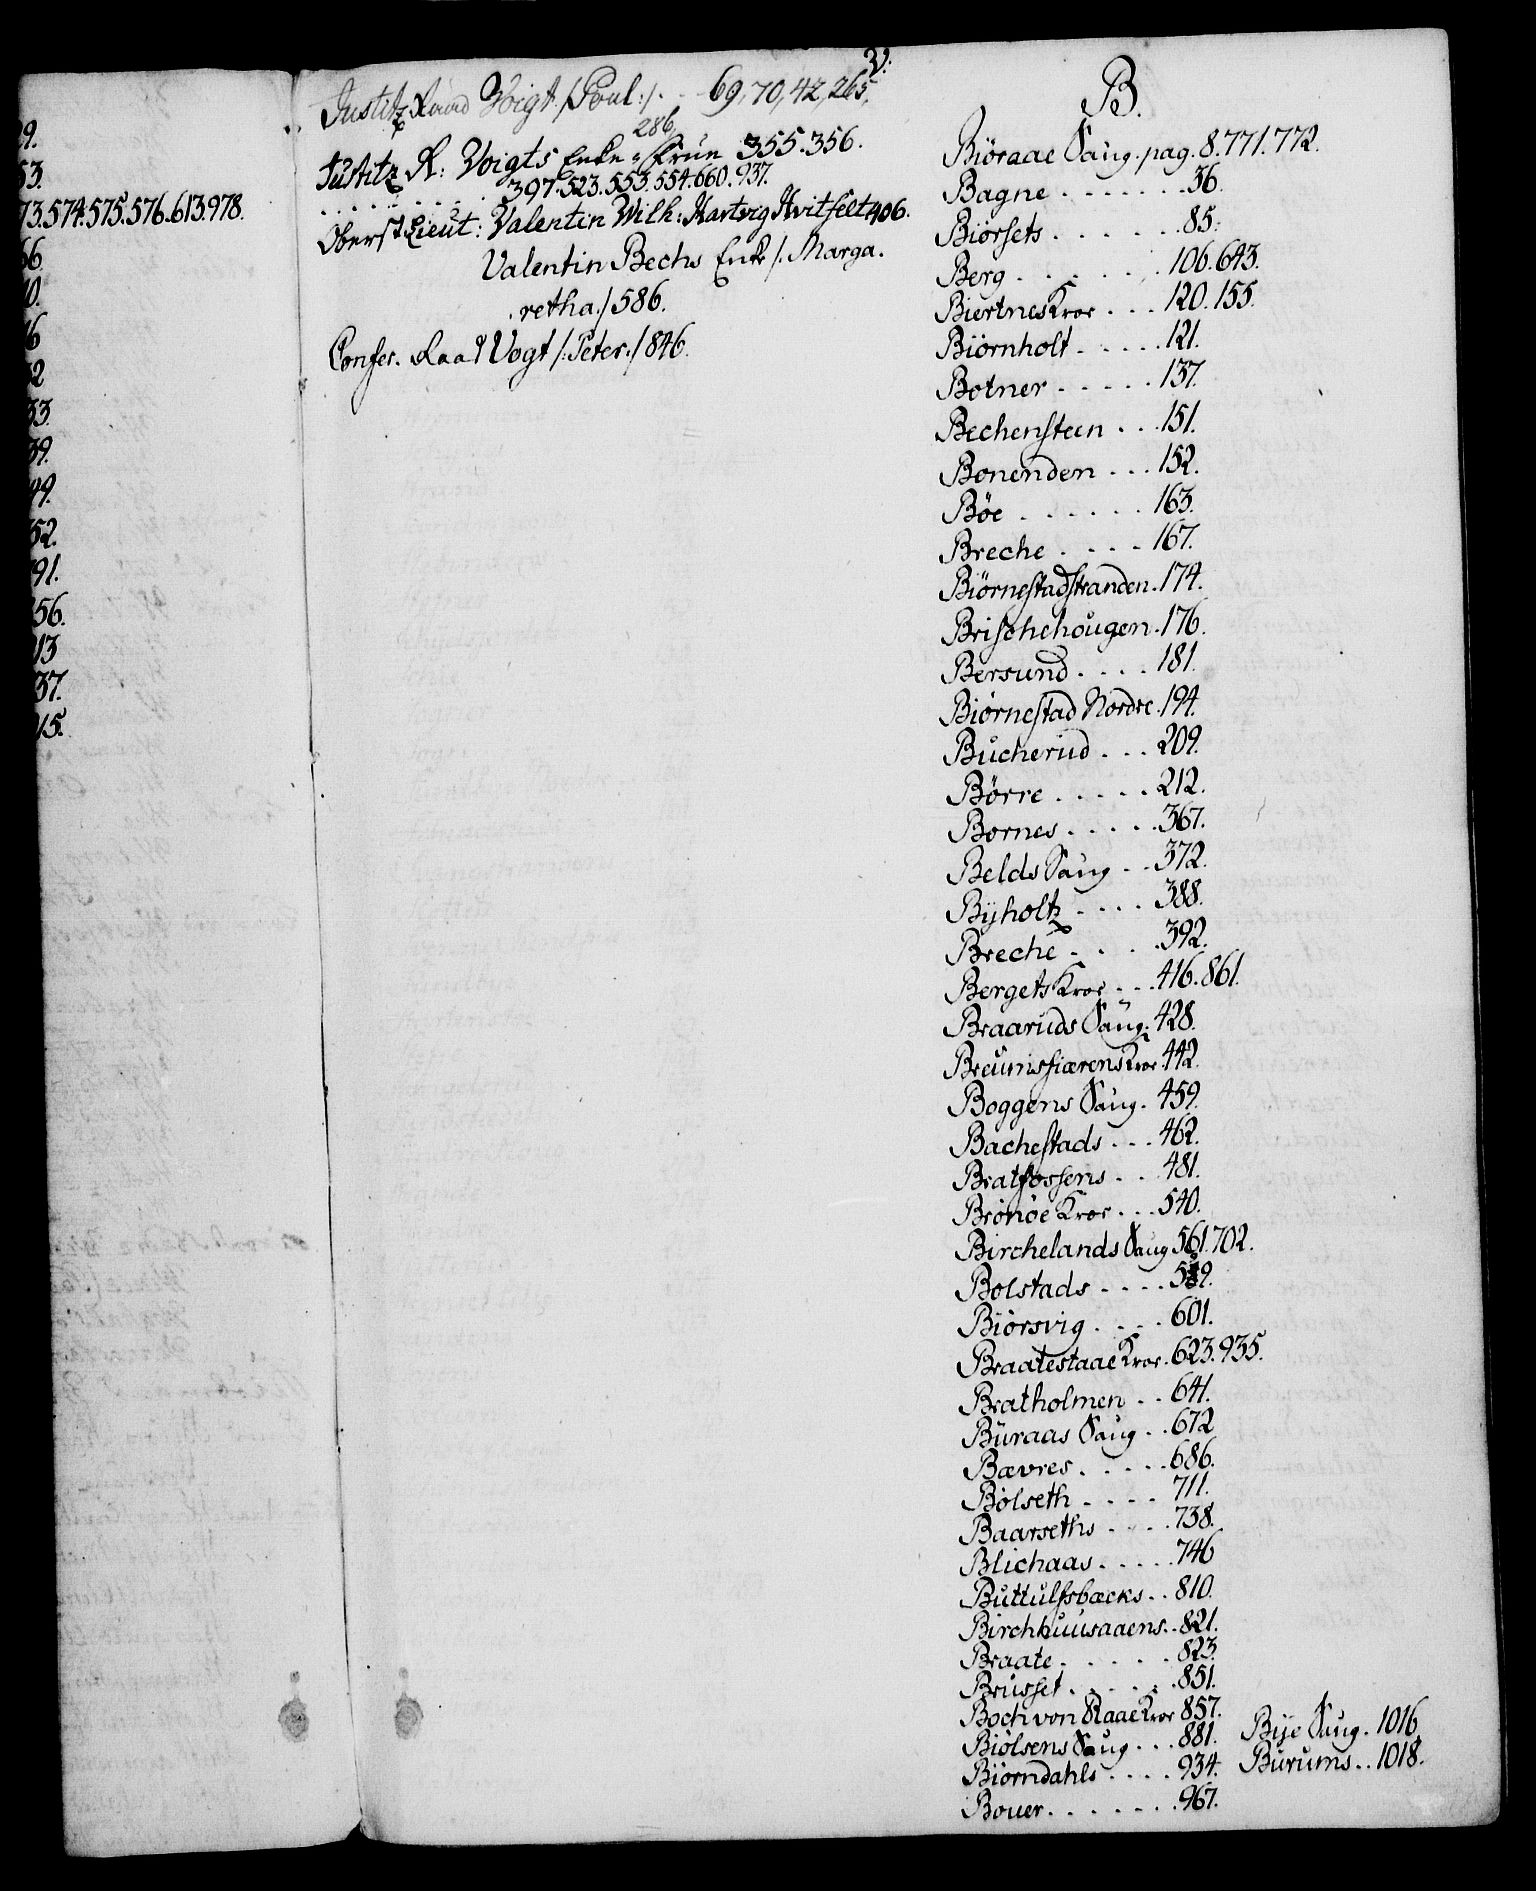 9.
53.
73.574.575.576.613.978.
66.
0.
6
2
33.
39.
49.
52.
91.
56.
13
37.
15.
V:
Justitz Raad Voigt /:Poul:/. - 69, 70, 42, 265,
286,
Justitz R: Voigts Enke = Frue 355.356.
. . . . . . . . . 397.523.553.554.660.937.
Oberst Lieut: Valentin Wilh: Hartvig Hvitfelt 406.
Valentin Bechs Enke /: Marga.
. retha./ 586.
Confer. Raad Vogt /: Peter:/ 846.
B.
Biöraae Saug. pag. 8.771.772.
Bagne . . . . . . . 36.
Biörsets . . . . . . 85.
Berg . . . . . . . 106.643.
Biertnes Kroe . . . 120.155.
Biörnholt . . . . . 121.
Botner . . . . . 137.
Bechensteen . . . 151.
Bonenden . . . 152.
Böe . . . . . . 163.
Breche . . . . 167.
Biörnestadstranden . 174.
Brischehougen . 176.
Bersund . . . . 181.
Biørnestad Nordre . 194.
Bucherud . . . 209.
Børre . . . . . 212.
Bornes . . . . . 367.
Belds Saug . . 372.
Byholtz . . . . 388.
Breche . . . . . 392.
Bergets Kroe . . . 416.861.
Braaruds Saug . 428.
Breumsfiærens Kroe . 442.
Boggens Saug . 459.
Bachestads . . . 462.
Bratfossens . . . 481.
Brönöe Kroe . . . 540.
Birchelands Saug 561.702.
Bolstads . . . . 589.
Biörsvig . . . . 601.
Braatestaae Kroe . 623.935.
Bratholmen . . 641.
Buraas Saug . . 672
Bævres . . . . . 686.
Bölseth . . . . 711.
Baarseths . . . . 738.
Blichaas . . . . . 746
Buttulfsbæcks . . 810.
Birchhuusaaens . . 821.
Braate . . . . . . 823.
Brusset . . . . . . 851.
Boch von Raae Kroe 857.
Biölsens Saug . . . 881. Bye Saug . 1016.
Biörndahls . . . . 934. Burums . . 1018.
Bouer . . . . . . . 967.